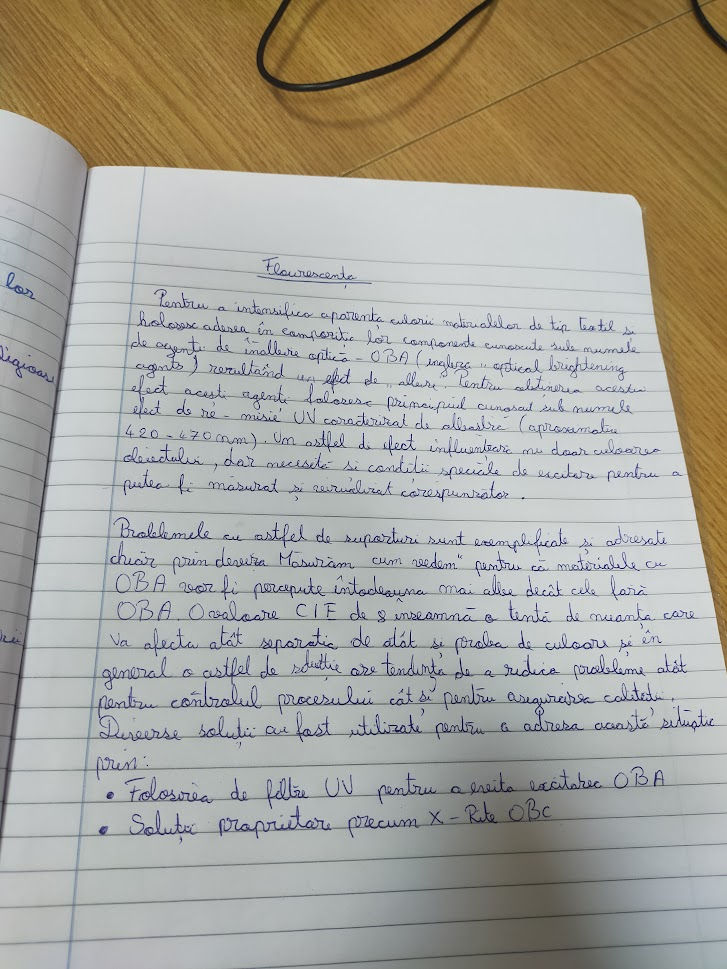 Flourescența
Pentru a intensifica aparența culorii materialelor de tip textil se
folosesc aderea în compoziția lor componente cunoscute sub numele
de agenți de înălbire optică - OBA (engleza „optical brightening
agents) rezultând un efect de „albire. Pentru obținerea acestui
efect acești agenți folosesc principiul cunoscut sub numele
efect de re-misie UV caracterizat de albastru (aproximativ
420-470 nm). Un astfel de efect influențează nu doar culoarea
obiectului, dar necesită și condiții speciale de excitare pentru a
putea fi măsurat și vizualizat corespunzător.
Problemele cu astfel de suporturi sunt exemplificate și adresate
chiar prin deviza Măsurăm cum vedem" pentru că materialele cu
OBA vor fi percepute întodeauna mai albe decât cele fară
OBA. O valoare CIE de 8 înseamnă o tentă de nuanța care
va afecta atât separația de atât și proba de culoare și în
general o astfel de soluție are tendința de a ridica probleme atât
pentru controlul procesului cât și pentru asigurarea calității.
Diverse soluții au fost utilizate pentru a adresa această situație
prin:
• Folosirea de filtre UV pentru a evita excitarea OBA
• Soluții proprietare precum X-Rite OBC
lor
ligioas